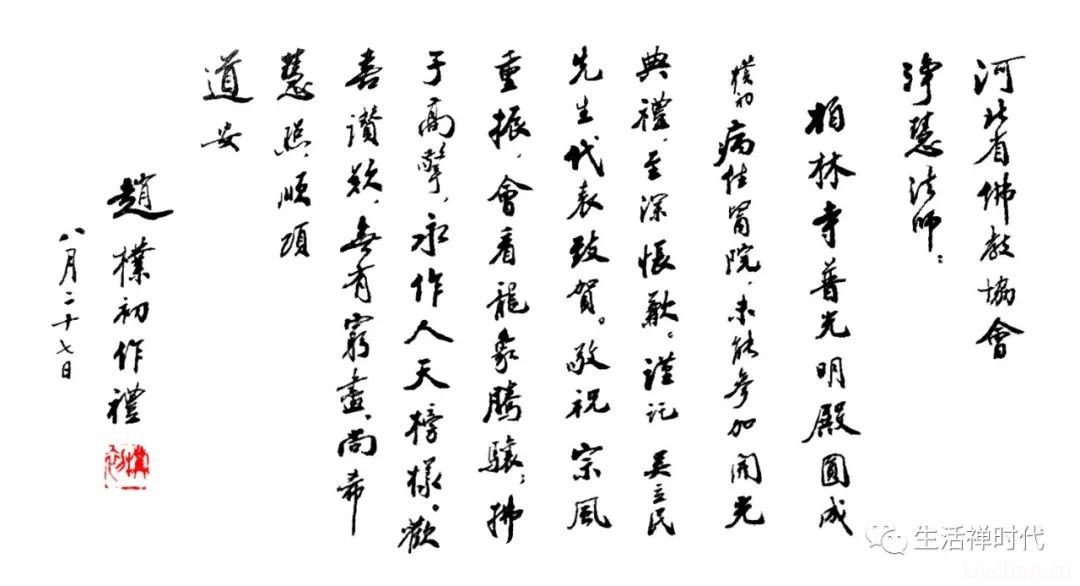 河北省佛教協會
淨慧法師：
柏林寺普光明殿圓成
樸初病住醫院，未能參加開光
典禮，至深悵歉。謹託 吴立民
先生代表致賀。敬祝 宗風
重振，會看龍象騰驤；拂
于高擎，永作人天榜樣。歡
喜讚歎，無有窮盡，尚希
慧照，順頌
道安
趙樸初作禮
八月二十七日
樸初
生活禅时代
Livchan.cn